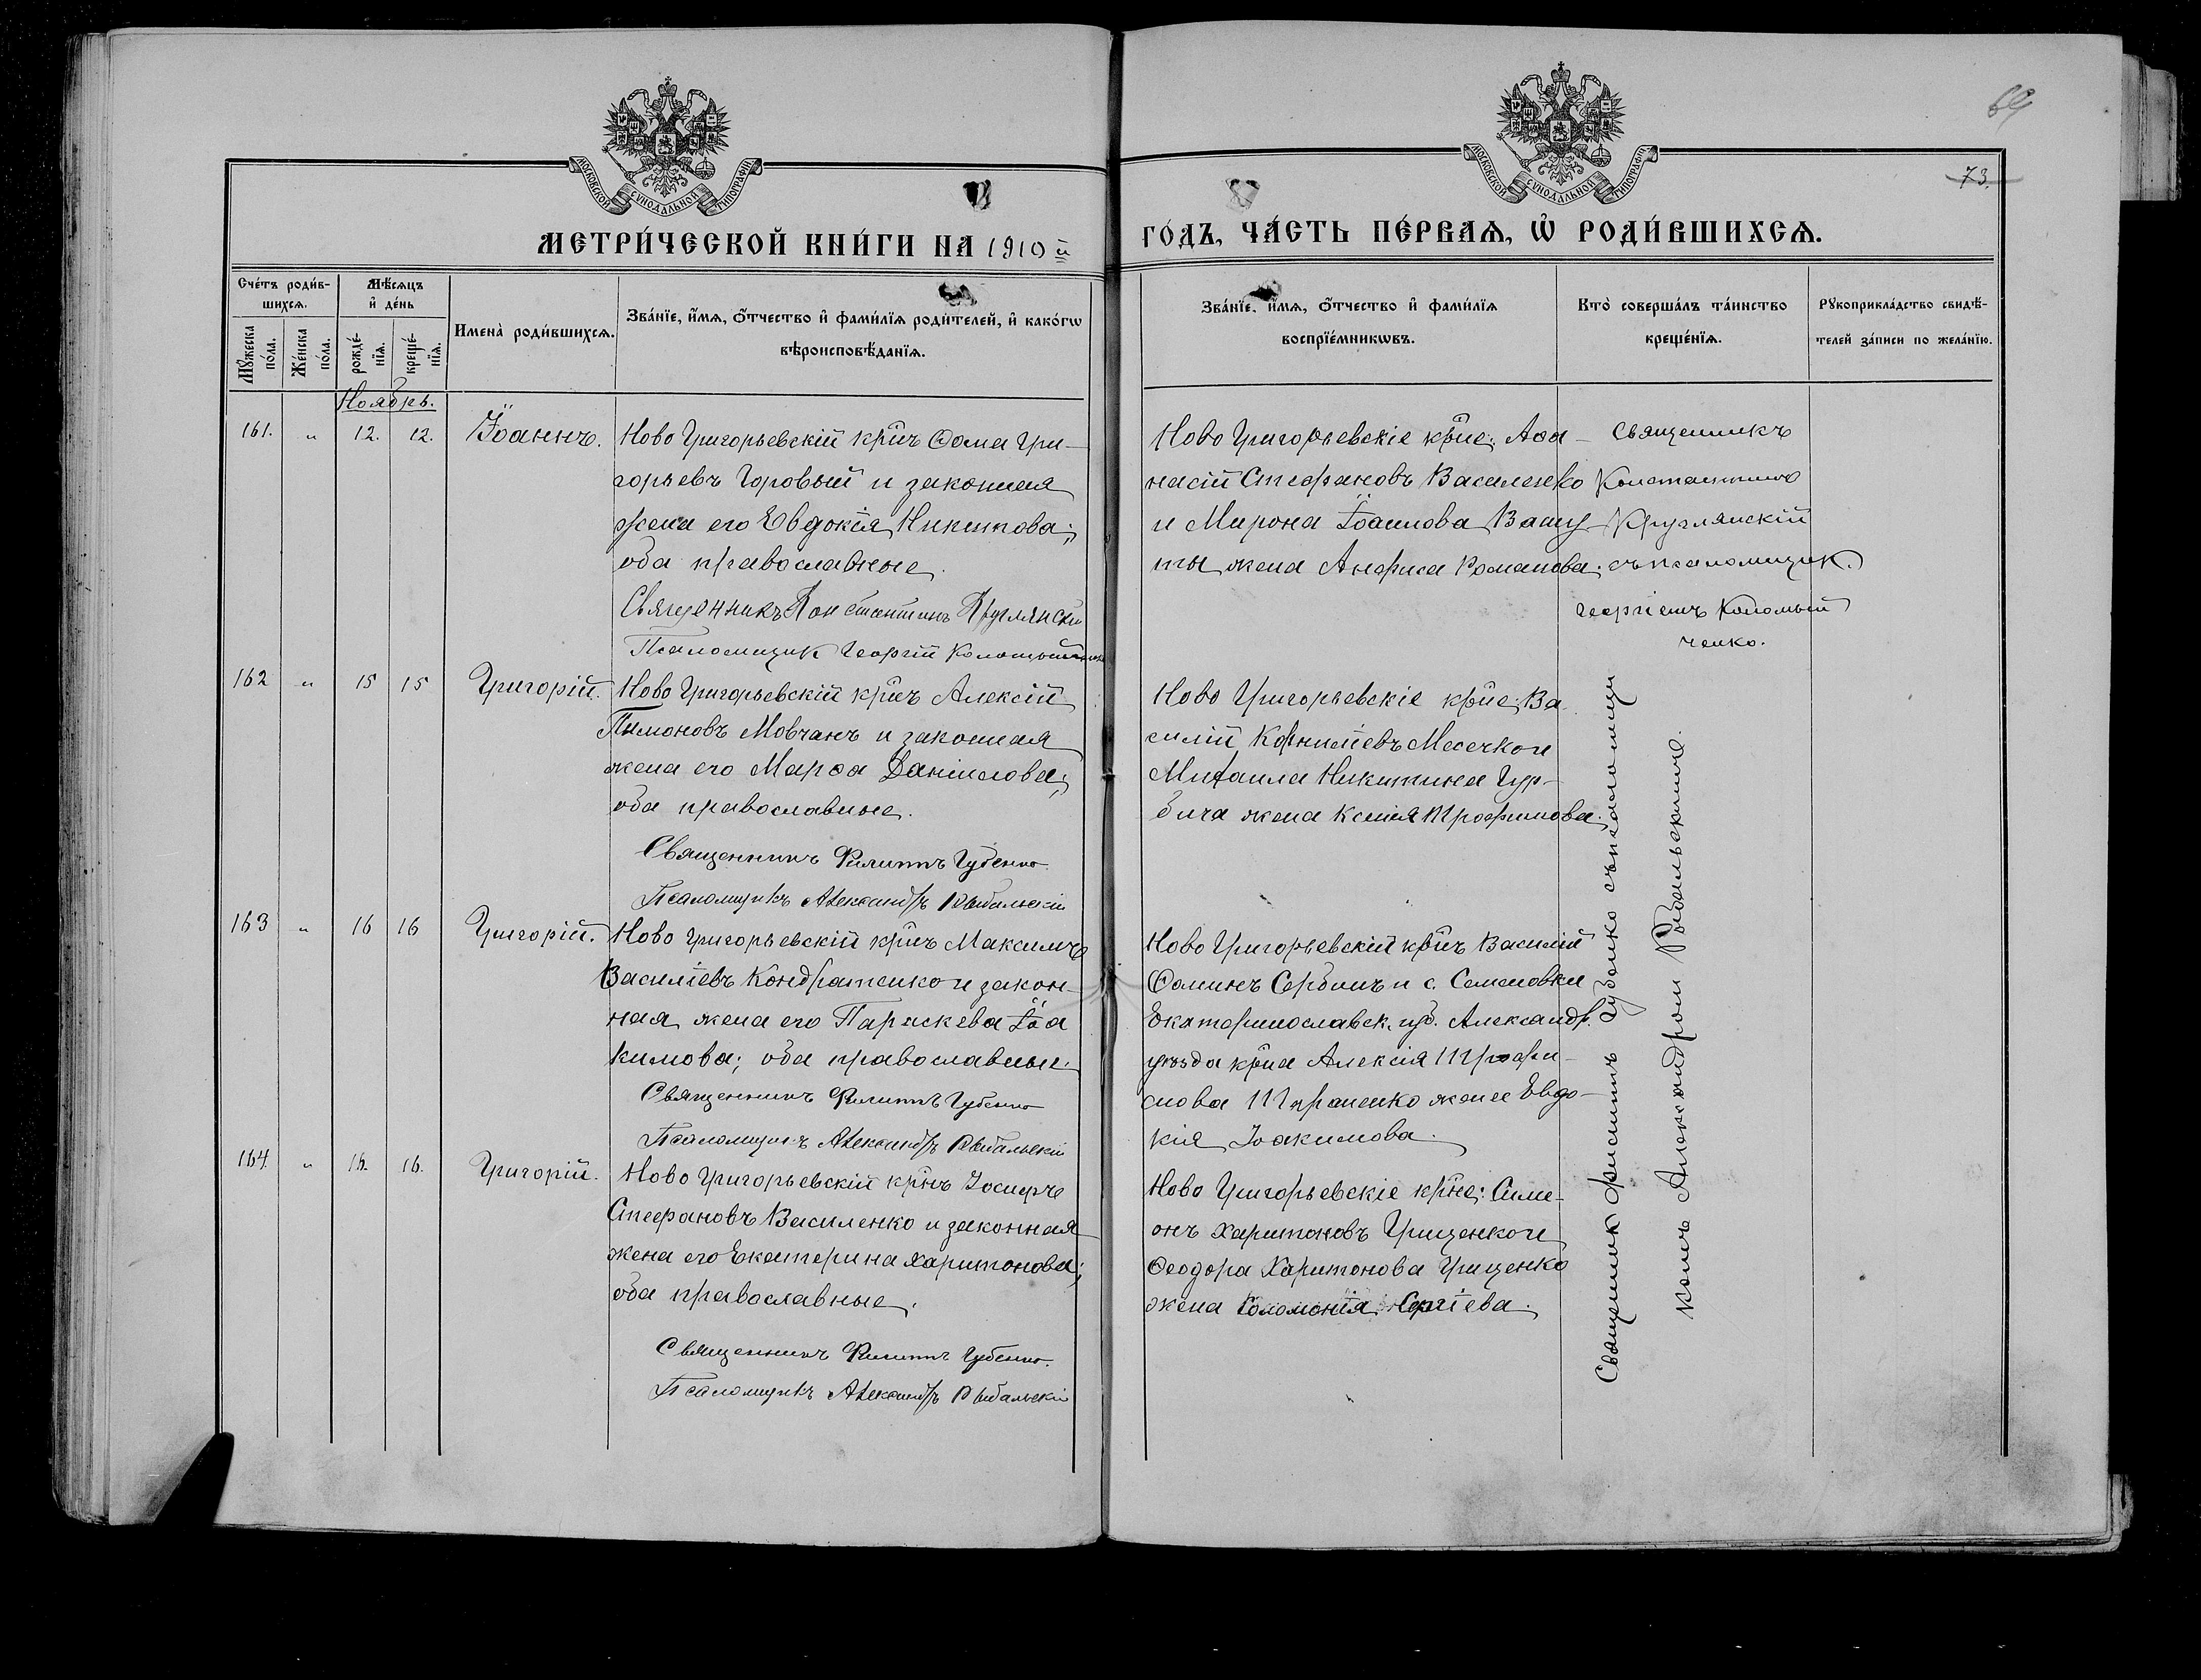 69
73.
МОСКОВСКОЙ СѴНОДАЛЬНОЙ ТИПОГРАФІИ
МОСКОВСКОЙ СѴНОДАЛЬНОЙ ТИПОГРАФІИ
МЕТРИ́ЧЕСКОЙ КНИ́ГИ НА 1910й
ГО́ДЪ, ЧА́СТЬ ПЕ́РВАѦ, Ѡ РОДИ́ВШИХСѦ.
Сче́тъ роди́в-
шихсѧ.
Мѣ́сѧцъ
и҆ де́нь
Мꙋ́жеска
по́ла.
Же́нска
по́ла.
рожде́-
нїѧ.
креще́-
нїѧ.
Имена̀ роди́вшихсѧ.
Зва́нїе, и҆́мѧ, ѻ҆́тчество и҆ фами́лїѧ роди́телей, и҆ како́гѡ
вѣроисповѣ́данїѧ.
Зва́нїе, и҆́мѧ, ѻ҆́тчество и҆ фами́лїѧ
воспрїе́мникѡвъ.
Кто̀ соверша́лъ та́инство
креще́нїѧ.
Рꙋкоприкла́дство свидѣ́-
телей за́писи по жела́нїю.
Ноябрь.
161. " 12. 12. Іоаннъ.
Ново Григорьевскій кр̃нъ Ѳома Гри-
горьевъ Горовый и законная
жена его Евдокія Никитова;
оба православные.
Священникъ Константинъ Круглянскій
Псаломщик Георгій
Ново Григорьевскіе кр̃не: Аѳа-
насій Стефановъ Василенко
и Мирона Іоаннова Вашу
ты жена Анфиса Романова.
Священникъ
Константинъ
Круглянскій
съ псаломщик.
Георгіемъ Коломый
ченко.
162 " 15 15 Григорій.
Ново Григорьевскій кр̃нъ Алексій
Пимоновъ Мовчанъ и законная
жена его Марѳа Даніилова;
оба православные.
Священникъ Филиппъ Губенко.
Псаломщикъ Александръ Рыбальскій
Ново Григорьевскіе кр̃не: Ва
силій Корниліевъ Месечко и
Михаила Никитина Гур-
бича жена Ксенія Трофимова.
163 " 16 16 Григорій.
Ново Григорьевскій кр̃нъ Максимъ
Василіевъ Кондратенко и закон-
ная жена его Параскева Іоа
кимова; оба православные.
Священникъ Филиппъ Губенко
Псаломщикъ Александръ Рыбальскій
Ново Григорьевскій кр̃нъ Василій
Ѳоминъ Сербинъ и с. Семеновки
Екатеринославск. губ. Александр.
уѣзда кр̃на Алексія Трофи-
мова жена Евдо-
кія Іоакимова.
164. " 16. 16. Григорій.
Ново Григорьевскій кр̃нъ Іосифъ
Стефановъ Василенко и законная
жена его Екатерина Харитонова;
оба православные.
Священникъ Филиппъ Губенко.
Псаломщикъ Александръ Рыбальскій
Ново Григорьевскіе кр̃не: Симе-
онъ Харитоновъ Грищенко и
Ѳеодора Харитонова Грищенко
жена Соломонія Сергіева.
Священник Филиппъ Губенко съ псаломщи
комъ Александром Рыбальскимъ.